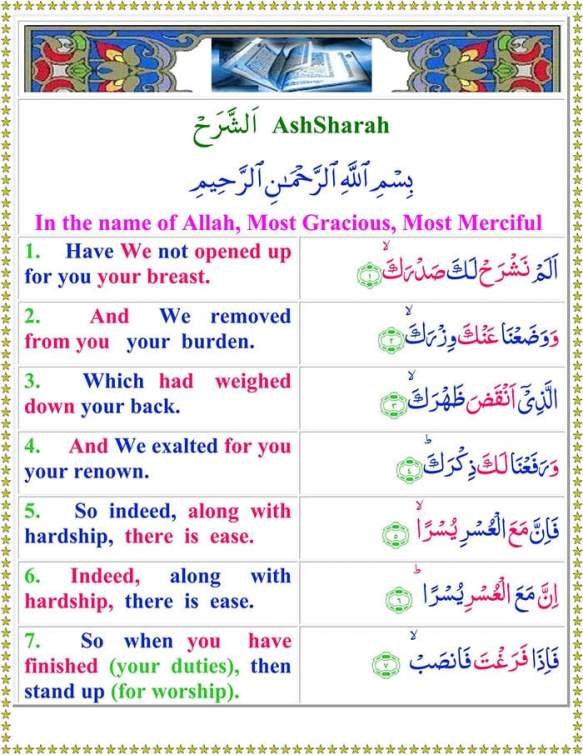 اَلشَّرَحْ AshSharah
بِسْمِ ٱللَّهِ ٱلرَّحْمَـٰنِ ٱلرَّحِيمِ
In the name of Allah, Most Gracious, Most Merciful
1. Have We not opened up
for you your breast.
اَلَمْ نَشْرَحْ لَكَ صَدْرَكَ ۙ ١
2. And We removed
from you your burden.
وَوَضَعْنَا عَنْكَ وِزْرَكَ ۙ ٢
3. Which had weighed
down your back.
الَّذِيْٓ اَنْقَضَ ظَهْرَكَ ۙ ٣
4. And We exalted for you
your renown.
وَرَفَعْنَا لَكَ ذِكْرَكَ ؕ ٤
5. So indeed, along with
hardship, there is ease.
فَاِنَّ مَعَ الْعُسْرِ يُسْرًا ۙ ٥
6. Indeed, along with
hardship, there is ease.
اِنَّ مَعَ الْعُسْرِ يُسْرًا ؕ ٦
7. So when you have
finished (your duties), then
stand up (for worship).
فَاِذَا فَرَغْتَ فَانصَبْ ۙ ٧